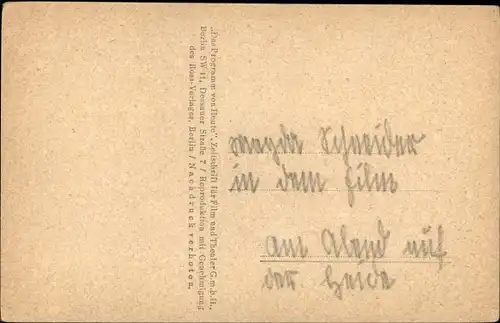 „Das Programm von Heute", Zeitschrift für Film und Theater G. m. b. H.,
Berlin SW 11, Dessauer Straße 7 / Reproduktion mit Genehmigung
des Ross-Verlages, Berlin / Nachdruck verboten.
Magda Schneider
in dem Film
am Abend auf
der Heide